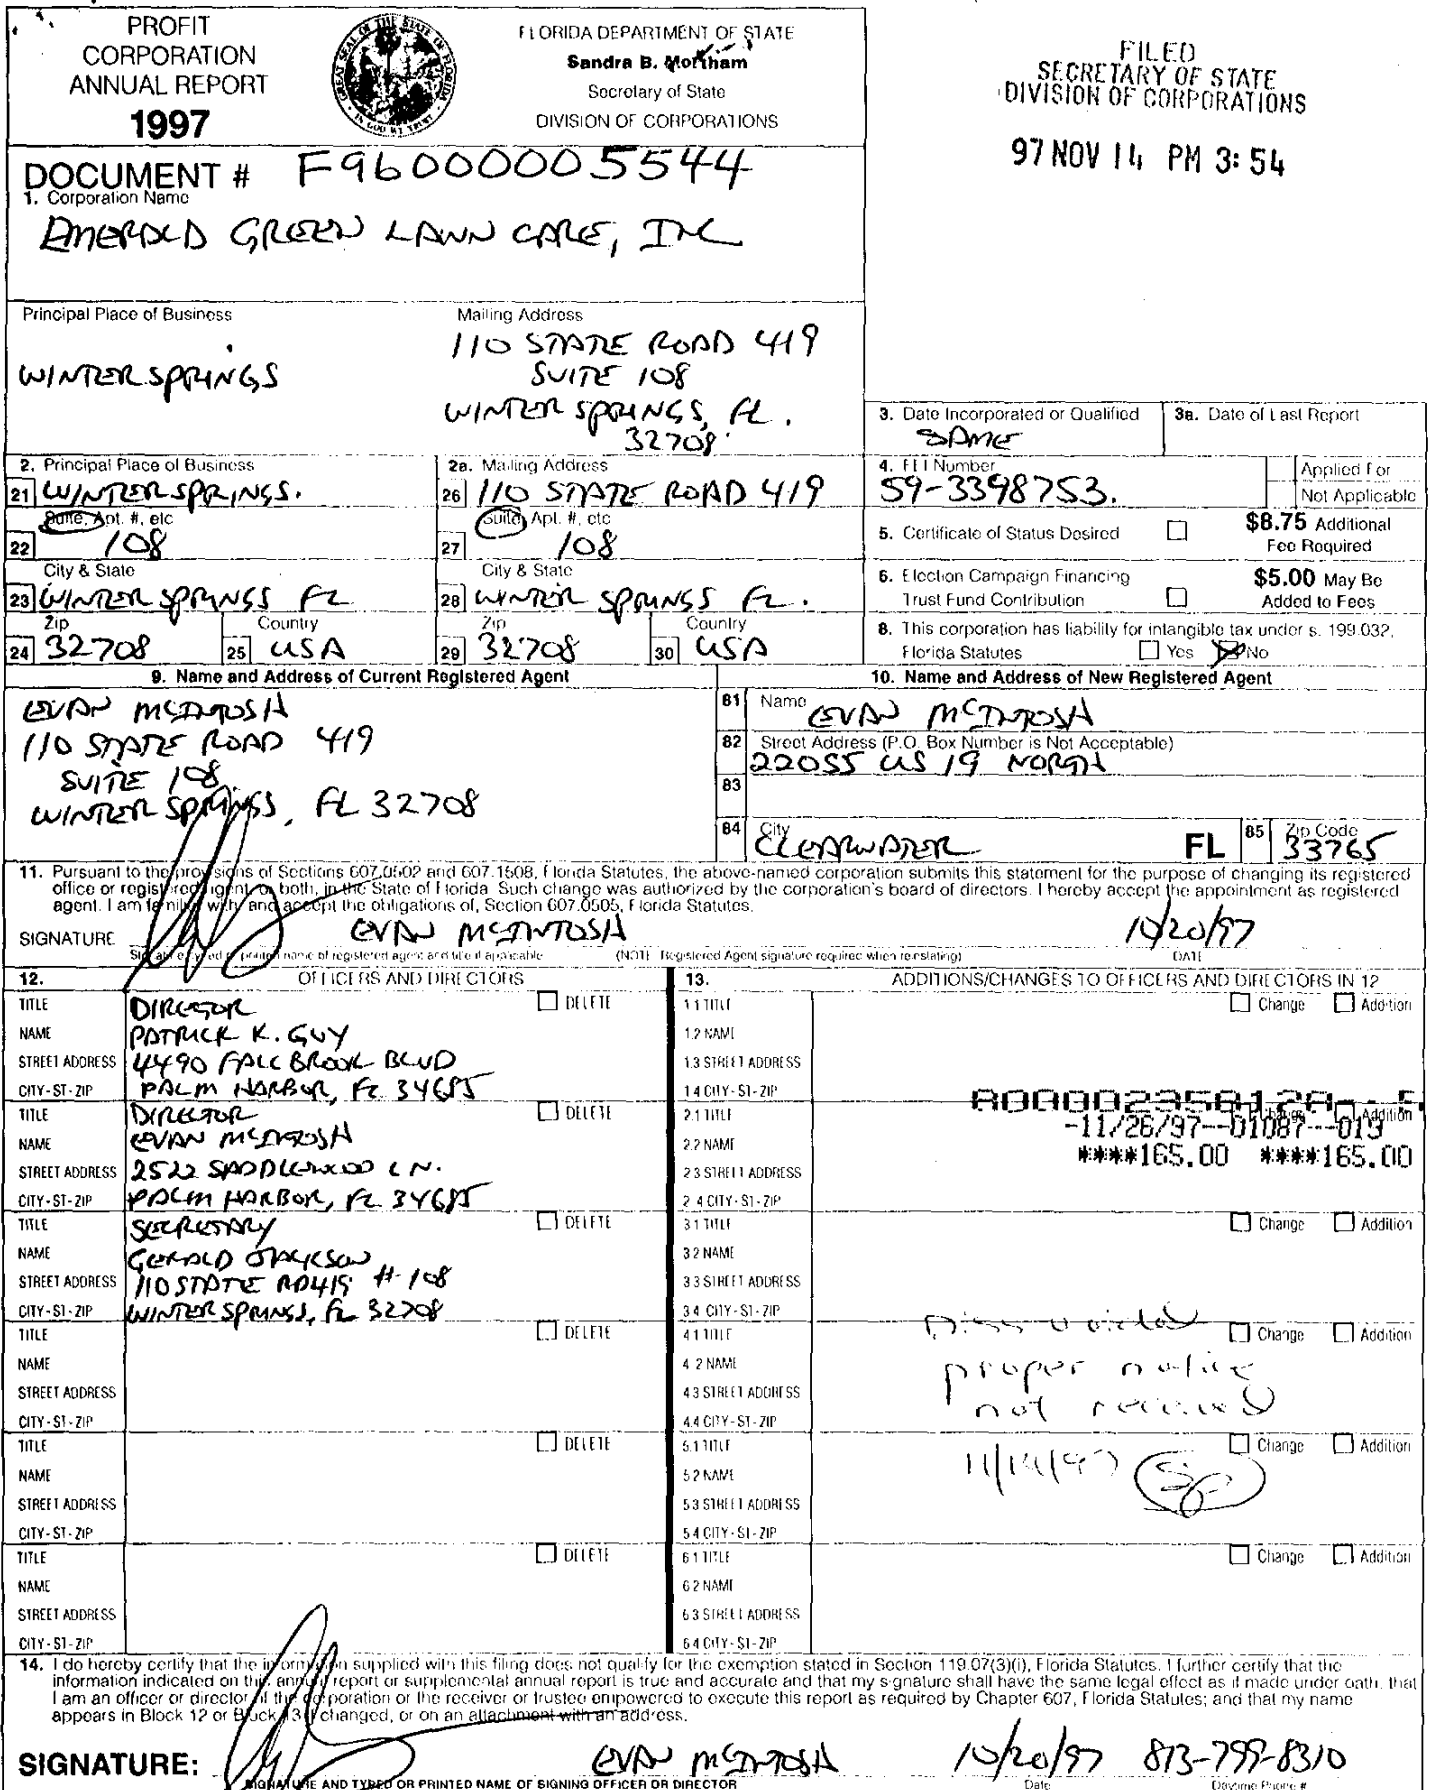 PROFIT
CORPORATION
ANNUAL REPORT
1997
GREAT SEAL OF THE STATE OF FLORIDA
IN GOD WE TRUST
FLORIDA DEPARTMENT OF STATE
Sandra B. Mortham
Secretary of State
DIVISION OF CORPORATIONS
FILED
SECRETARY OF STATE
DIVISION OF CORPORATIONS
97 NOV 14 PM 3:54
DOCUMENT # F96000005544
1. Corporation Name
EMERALD GREEN LAWN CARE, INC
Principal Place of Business
WINTER SPRINGS
Mailing Address
110 STATE ROAD 419
SUITE 108
WINTER SPRINGS, FL.
32708
3. Date Incorporated or Qualified
SAME
3a. Date of Last Report
2. Principal Place of Business
21 WINTER SPRINGS.
2a. Mailing Address
26 110 STATE ROAD 419
4. FEI Number
59-3398753.
Applied For
Not Applicable
Suite, Apt. #, etc
22 108
Suite, Apt. #, etc
27 108
5. Certificate of Status Desired
$8.75 Additional
Fee Required
City & State
23 WINTER SPRINGS FL
City & State
28 WINTER SPRINGS FL.
6. Election Campaign Financing
Trust Fund Contribution
$5.00 May Be
Added to Fees
Zip
24 32708
Country
25 USA
Zip
29 32708
Country
30 USA
8. This corporation has liability for intangible tax under s. 199.032,
Florida Statutes Yes No
9. Name and Address of Current Registered Agent
EVAN MCINTOSH
110 STATE ROAD 419
SUITE 108
WINTER SPRINGS, FL 32708
10. Name and Address of New Registered Agent
81 Name EVAN MCINTOSH
82 Street Address (P.O. Box Number is Not Acceptable)
22055 US 19 NORTH
83
84 City CLEARWATER FL 85 Zip Code 33765
11. Pursuant to the provisions of Sections 607.0502 and 607.1508, Florida Statutes, the above-named corporation submits this statement for the purpose of changing its registered
office or registered agent, or both, in the State of Florida. Such change was authorized by the corporation's board of directors. I hereby accept the appointment as registered
agent. I am familiar with, and accept the obligations of, Section 607.0505, Florida Statutes.
SIGNATURE EVAN MCINTOSH 10/20/97
Signature, typed or printed name of registered agent and title if applicable (NOTE Registered Agent signature required when reinstating) DATE
12. OFFICERS AND DIRECTORS
TITLE DIRECTOR DELETE
NAME PATRICK K. GUY
STREET ADDRESS 4490 FALLBROOK BLVD
CITY-ST-ZIP PALM HARBOR, FL 34685
TITLE DIRECTOR DELETE
NAME EVAN MCINTOSH
STREET ADDRESS 2522 SADDLEWOOD LN.
CITY-ST-ZIP PALM HARBOR, FL 34685
TITLE SECRETARY DELETE
NAME GERALD JACKSON
STREET ADDRESS 110 STATE RD 419 #108
CITY-ST-ZIP WINTER SPRINGS, FL 32708
TITLE DELETE
NAME
STREET ADDRESS
CITY-ST-ZIP
TITLE DELETE
NAME
STREET ADDRESS
CITY-ST-ZIP
TITLE DELETE
NAME
STREET ADDRESS
CITY-ST-ZIP
13. ADDITIONS/CHANGES TO OFFICERS AND DIRECTORS IN 12
1.1 TITLE Change Addition
1.2 NAME
1.3 STREET ADDRESS
1.4 CITY-ST-ZIP
2.1 TITLE Change Addition
-11/26/97--01087--019
2.2 NAME
****165.00 ****165.00
2.3 STREET ADDRESS
2.4 CITY-ST-ZIP
3.1 TITLE Change Addition
3.2 NAME
3.3 STREET ADDRESS
3.4 CITY-ST-ZIP
4.1 TITLE Change Addition
4.2 NAME
proper notice
4.3 STREET ADDRESS
not received
4.4 CITY-ST-ZIP
5.1 TITLE Change Addition
11/14/97
5.2 NAME
5.3 STREET ADDRESS
5.4 CITY-ST-ZIP
6.1 TITLE Change Addition
6.2 NAME
6.3 STREET ADDRESS
6.4 CITY-ST-ZIP
14. I do hereby certify that the information supplied with this filing does not qualify for the exemption stated in Section 119.07(3)(i), Florida Statutes. I further certify that the
information indicated on this annual report or supplemental annual report is true and accurate and that my signature shall have the same legal effect as if made under oath, that
I am an officer or director of the corporation or the receiver or trustee empowered to execute this report as required by Chapter 607, Florida Statutes; and that my name
appears in Block 12 or Block 13 if changed, or on an attachment with an address.
SIGNATURE: EVAN MCINTOSH 10/20/97 813-799-8310
SIGNATURE AND TYPED OR PRINTED NAME OF SIGNING OFFICER OR DIRECTOR Date Daytime Phone #